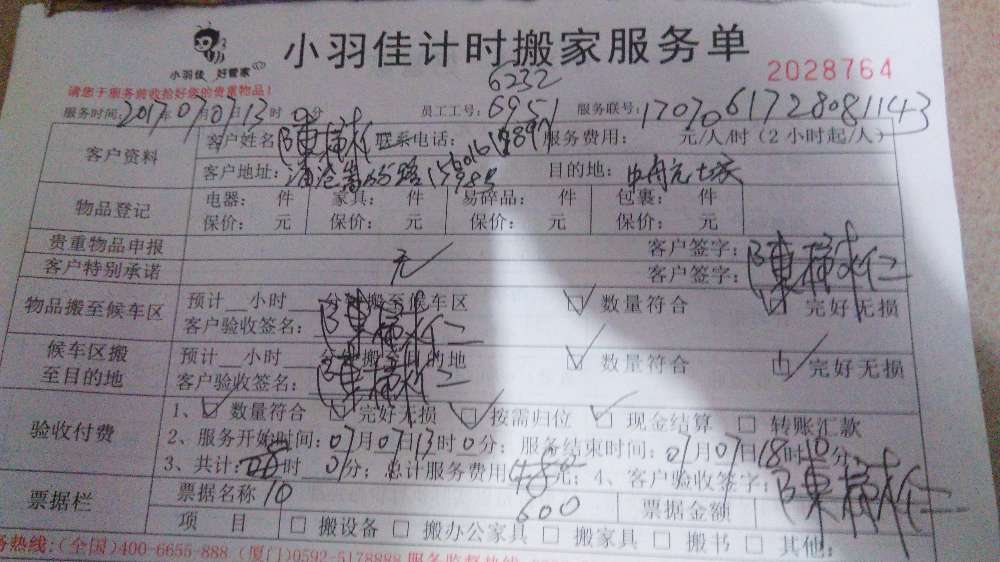 小羽佳计时搬家服务单
小羽佳 好管家
2028764
请您于服务前收拾好您的贵重物品!
6232
服务时间: 2017年07月07日13时0分 员工工号: 6951 服务联号: 1707061728081143
客户资料 客户姓名 联系电话: 服务费用: 元/人/时(2小时起/人)
客户地址: 目的地:
物品登记 电器: 件 家具: 件 易碎品: 件 包裹: 件
保价: 元 保价: 元 保价: 元 保价: 元
贵重物品申报 客户签字:
客户特别承诺 元 客户签字:
物品搬至候车区 预计__小时 分 搬至候车区 数量符合 完好无损
客户验收签名:
候车区搬至目的地 预计__小时 的地 数量符合 完好无损
客户验收签名:
验收付费 1、 数量符合 完好无损 按需归位 现金结算 转账汇款
2、服务开始时间: 07月07日13时0分; 服务结束时间: 07月07日18时10分
3、共计: 时 分; 总计服务费用 480元; 4、客户验收签字:
票据栏 票据名称 10 600 票据金额
项 目 搬设备 搬办公家具 搬家具 搬书 其他:
务热线:(全国)400-6655-888 (厦门)0592-5178888 服务监督热线